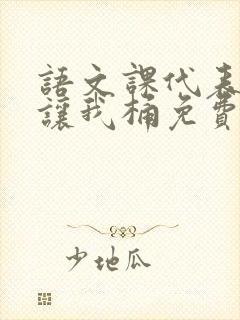 語文課代表
讓我桶免費
少地瓜